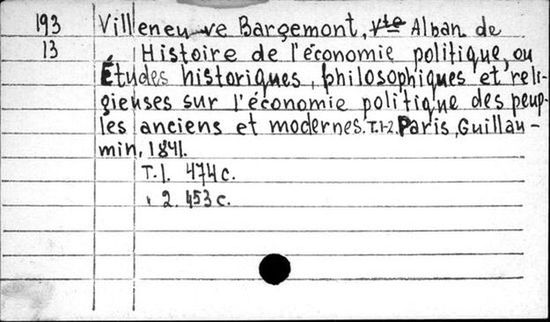 193 Villeneuve Bargemont, Vte Alban de
13 Histoire de l'économie politique, ou
Études historiques, philosophiques et reli-
gieuses sur l'économie politique des peup-
les anciens et modernes. T.1-2. Paris, Guillau-
min, 1841.
T.1. 474 c.
" 2. 453 c.